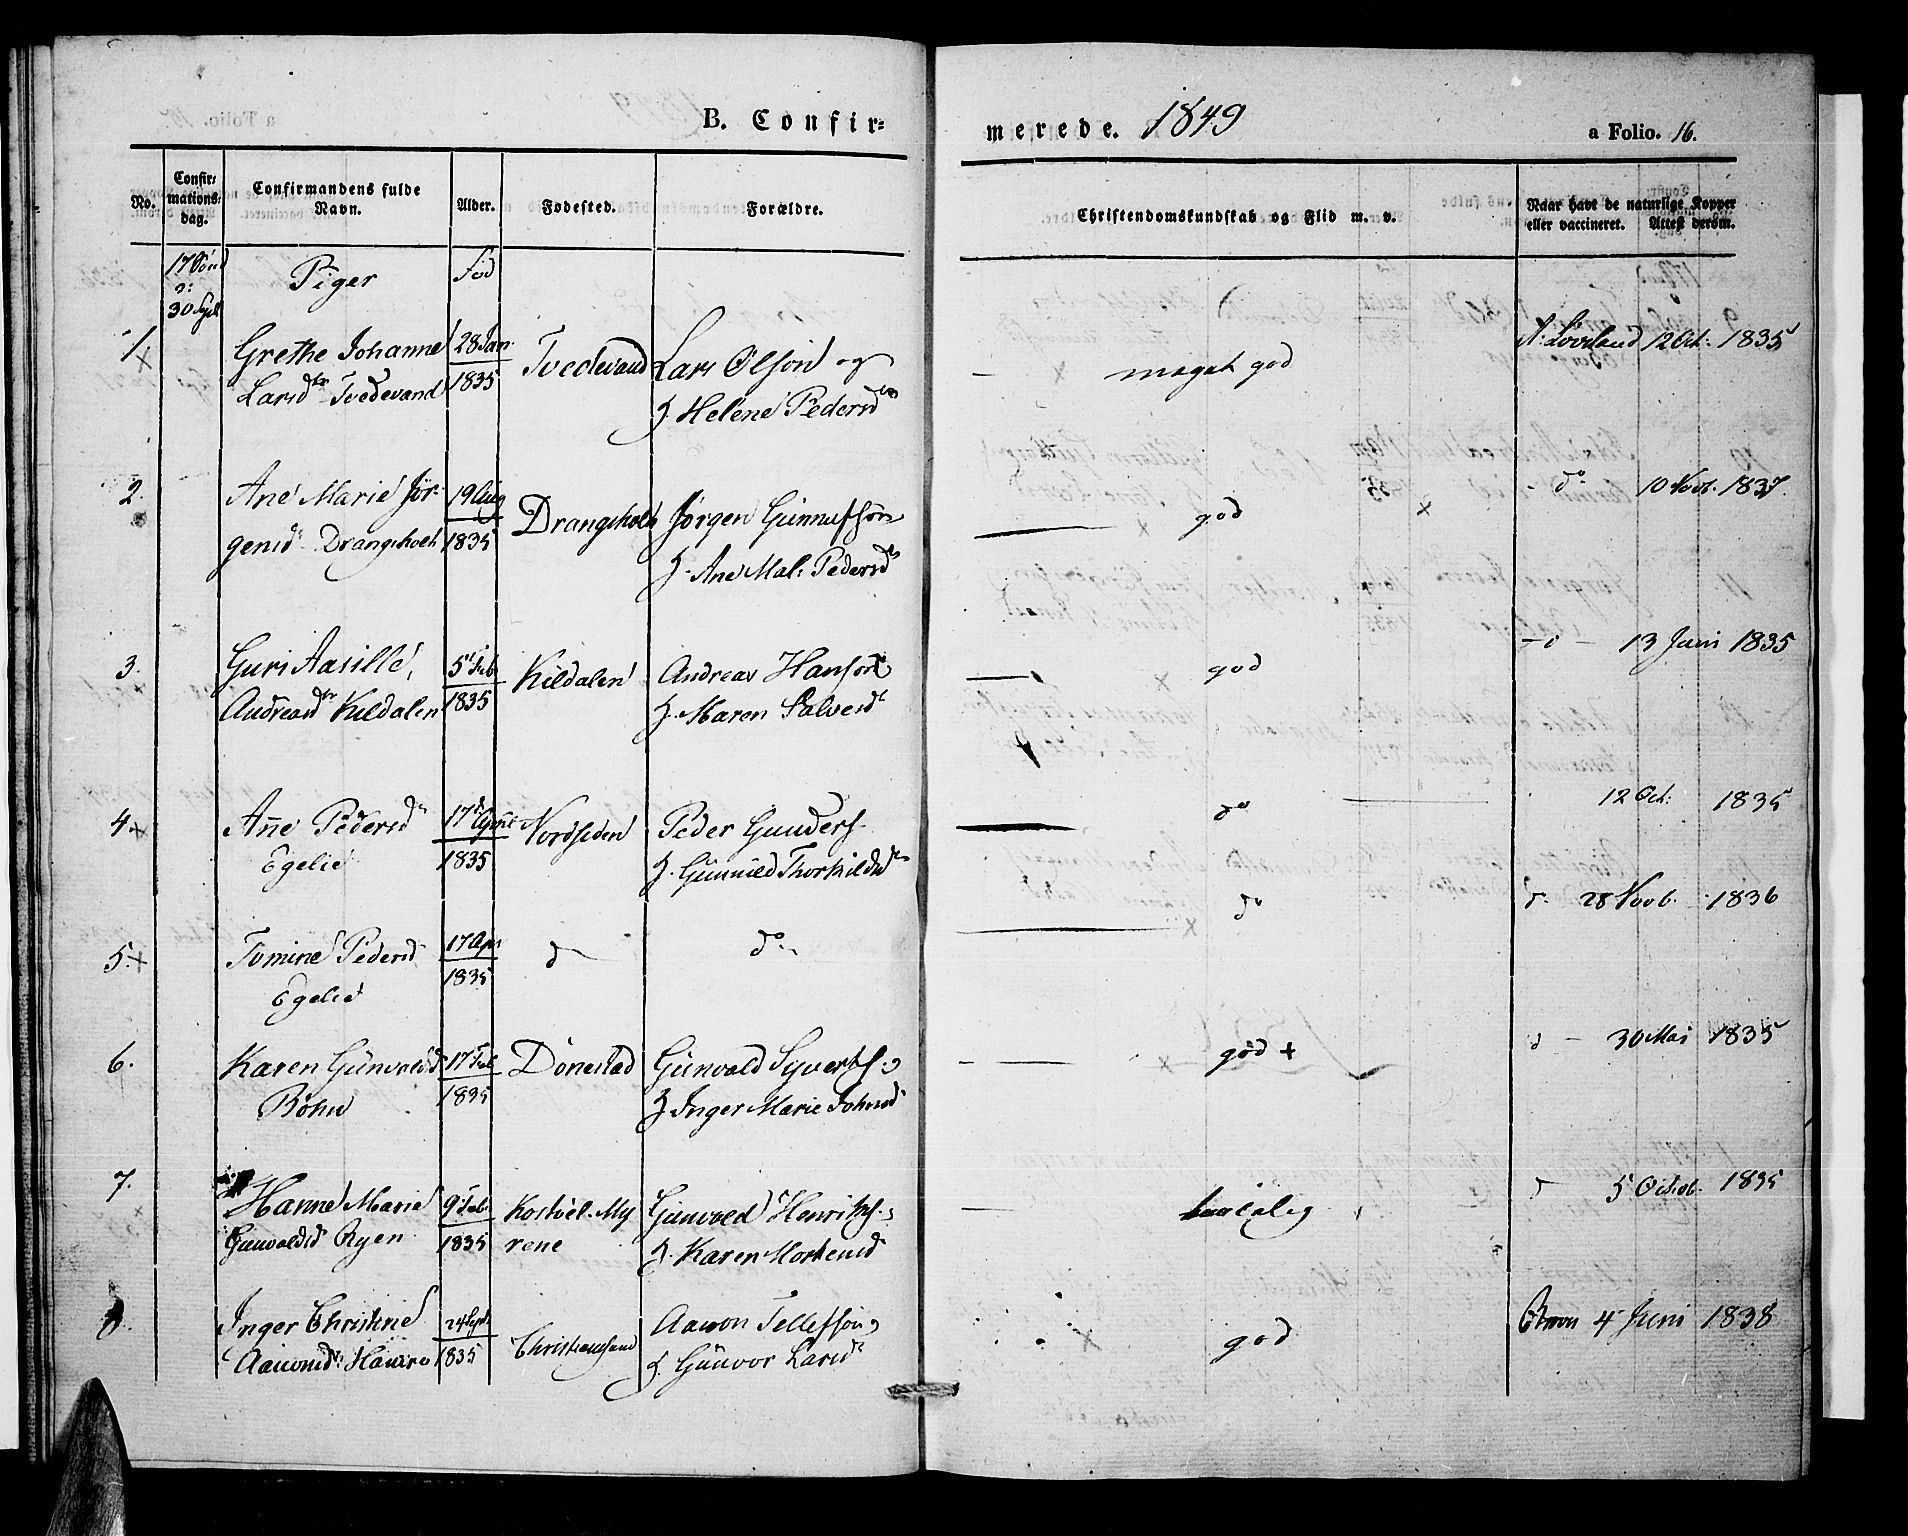 B. Confir=
merede. 1849
a Folio. 16.
No.
Confir=
mations=
dag.
Confirmandens fulde
Navn.
Alder.
Fødested.
Forældre.
Christendomskundskab og Flid m. v.
Naar havt de naturlige Kopper
eller vaccineret. Attest derom.
17 Sønd
ɔ:
30 Sept
Piger
Fød
1
Grethe Johanne
Larsdr Tvedevand
28 Jan.
1835
Tvedevand
Lars Olsøn og
H. Helene Pedersdr
meget god
A: Løvsland 12 Oct. 1835
2.
Ane Marie Jør-
gensd. Drangsholt
19 Aug
1835
Drangsholt
Jørgen Gunnufsøn
H. Ane Mal: Pedersd
god
do 10 Novb. 1837.
3.
Guri Aasille,
Andreasdr Kildalen
5 Feb
1835
Kildalen
Andreas Hansøn
H. Maren Salvesd
god
13 Juni 1835
4.
Ane Pedersd
Egelie
17 April
1835
Nordsiden
Peder Gunders.
H. Gunnild Thorkildsd
do
12 Oct: 1835
5.
Tomine Pedersd
Egelie
17 Apr
1835
d
do
do
d. 28 Novb. 1836
6.
Karen Gunvaldsd
Bøhn
17 Feb
1835
Dønestad
Gunvald Syverts.
H. Inger Marie Johnsd
god +
d 30 Mai 1835
7.
Hanne Marie
Gunvaldsd Ryen
9 Feb.
1835
Kostøl. My
rene
Gunvald Henriks.
H. Karen Mortensd
taalelig
d 5 Octob. 1835
8.
Inger Christine
Aanonsd.
24 Sept
1835
Christiansand
Aanon Tellefsøn
H. Gunvor Larsd
god
4 Juni 1838